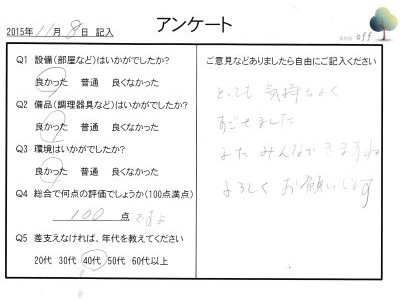 2015年11月8日 記入
アンケート
off
Q1 設備（部屋など）はいかがでしたか？
良かった 普通 良くなかった
Q2 備品（調理器具など）はいかがでしたか？
良かった 普通 良くなかった
Q3 環境はいかがでしたか？
良かった 普通 良くなかった
Q4 総合で何点の評価でしょうか（100点満点）
100 点 ですよ
Q5 差支えなければ、年代を教えてください
20代 30代 40代 50代 60代以上
ご意見などありましたら自由にご記入ください
とっても 気持ちよく
すごせました
また みんなで きますね
よろしく お願いします